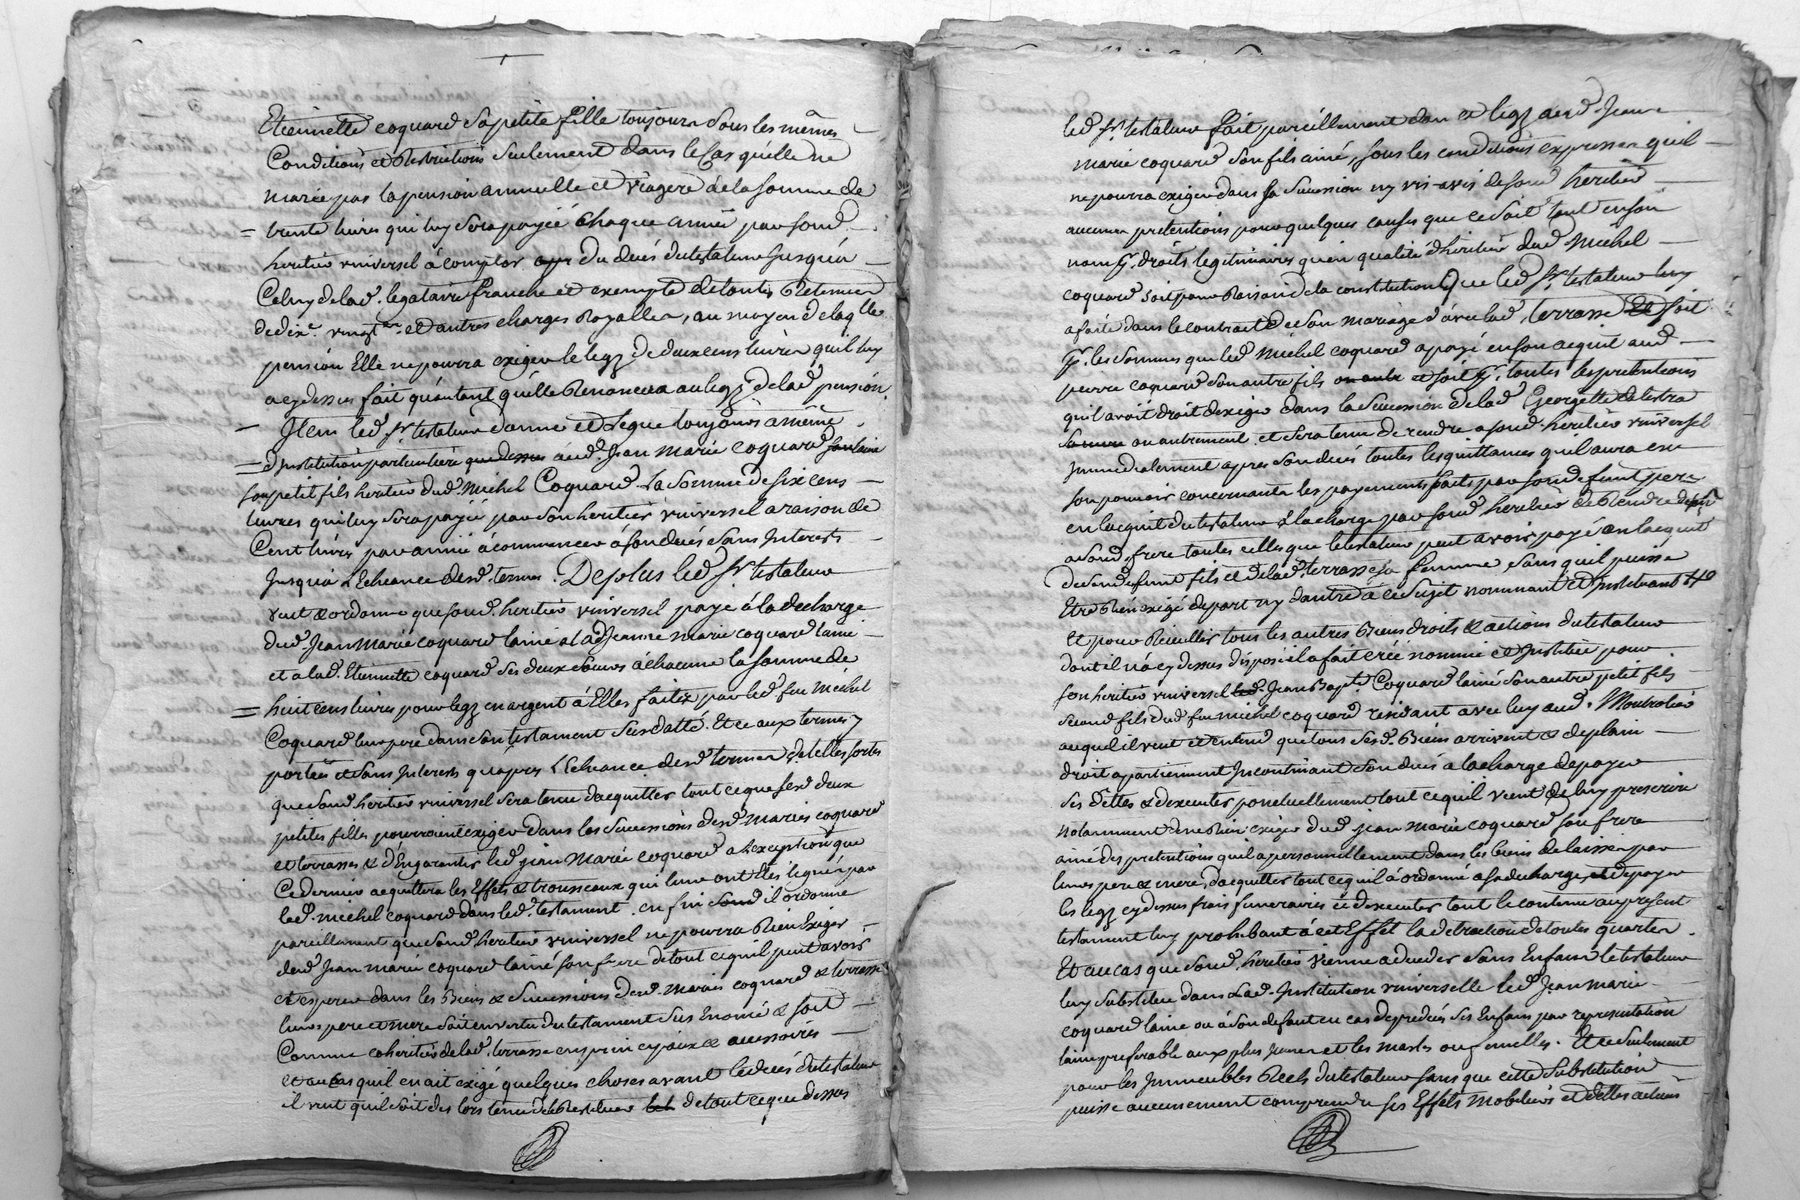 Etiennette coquard sa petite fille toujours sous les mêmes
Conditions et Restrictions seulement dans le Cas qu'elle ne
marie pas la pension annuelle et viagere de la somme de
trente livres qui luy sera payée chaque année par sond.
heritier universel à compter du decés du testateur jusqu'à
Celuy de lad. legataire franche et exempte de toutes Retenues
de dixe. vingte. et d'autres charges Royalles, au moyen de laqlle
pension Elle ne pourra exiger le legz de deux cens livres qu'il luy
a cy dessus fait qu'autant qu'elle Renoncera au legz de lad. pension
Item led. sr. testateur donne et legue toujours à même
d'institution particulière que dessus aud. Jean Marie Coquard
son petit fils heritier dud. Michel Coquard la somme de six cens
livres qui luy sera payée par son heritier universel a raison de
Cent livres par année à commencer à son decés sans Interests
jusqu'à l'Echeance desd. termes. De plus led. sr. testateur
veut et ordonne que sond. heritier universel paye à la decharge
dud. Jean Marie coquard lainé a lad. Jeanne marie coquard laine
et a lad. Etiennette coquard ses deux soeurs à chacune la somme de
huit cens livres pour legz en argent à Elles faits par led. feu Michel
Coquard leur pere dans son testament susdatté. Et ce aux termes y
portés et sans Interests qu'apres l'Echeance desd. termes de telles sortes
que sond. heritier universel sera tenu d'acquitter tout ce que sesd. deux
petites filles pourroient exiger dans les successions desd. mariés coquard
et terrasse et d'En garantir led. jean Marie coquard a l'exception que
Ce dernier acquittera les Effets et trousseaux qui leur ont étés légués par
led. michel coquard dans led. testament. enfin il ordonne
pareillement que sond. heritier universel ne pourra Rien Exiger
dud. Jean marie coquard lainé son frere de tout ce qu'il peut avoir
et esperer dans les Biens et successions desd. Mariés coquard et terrasse
leurs pere et mere soit en vertu du testament sus Enoncé et soit
Comme coheritier de lad. terrasse en principaux et accessoires
et au cas qu'il en ait exigé quelques choses avant le decés du testateur
il veut qu'il soit des lors tenu de le Restituer de tout ce que dessus
led. sr. testateur fait pareillement don et legz aud. Jean
marie coquard son fils ainé, sous les conditions expresses qu'il
ne pourra exiger dans sa succession ny vis-avis de sond. heritier
aucunes pretentions pour quelques causes que ce soit tant en son
nom pr. droits legitimaires qu'en qualité d'heritier dud. Michel
coquard soit pour Raison de la constitution que led. sr. testateur luy
a faite dans le contrait de son mariage d'avec lad. terrasse soit
pr. les sommes que led. Michel coquard a payé en son acquit aud.
pierre coquard son autre fils et soit pr. toutes les pretentions
qu'il avoit droit d'exiger dans la succession de lad. Georgette delestra
ou autrement. et sera tenu de rendre a sond. heritier universel
immediatement apres son decés toutes les quittances qu'il aura en
son pouvoir concernants les payements faits par sond. defunt pere
en lacquit du testateur à la charge par sond. heritier de Rendre
a sond. frere toutes celles que le testateur peut avoir payé en lacquit
de sond. defunt fils et de lad. terrasse sa femme sans qu'il puisse
Etre Rien exigé de part ny d'autre à ce sujet nommant et instituant
Et pour Recueillir tous les autres Biens droits et actions du testateur
dont il n'a cy dessus disposé il a fait créé nommé et Institué pour
son heritier universel Jean Bapte. Coquard lainé son autre petit fils
second fils dud. feu michel coquard résidant avec luy aud. Montrotier
auquel il veut et entend que tous sesd. Biens arrivent et de plain
droit appartiennent Incontinant son decés a la charge de payer
ses dettes et d'executer ponctuellement tout ce qu'il vient de luy prescrire
notamment de ne Rien exiger dud. jean Marie coquard son frere
ainé des pretentions qu'il a personnellement dans les biens delaissés par
leurs pere et mere, d'acquitter tout ce qu'il a ordonné a sa decharge, de payer
les legz cy dessus frais funeraires et d'executer tout le contenu au present
testament luy prohibant à cet Effet la detraction de toutes quartes.
Et au cas que sond. heritier vienne a deceder sans Enfans le testateur
luy substitue dans lad. Institution universelle led. Jean Marie
coquard laine ou à son defaut en cas de predecés ses Enfans par representation
laine preferable aux plus jeunes et les masles aux femelles. Et ce seulement
pour les Immeubles Reels du testateur sans que cette substitution
puisse aucunement comprendre ses Effets Mobiliers et dettes actives